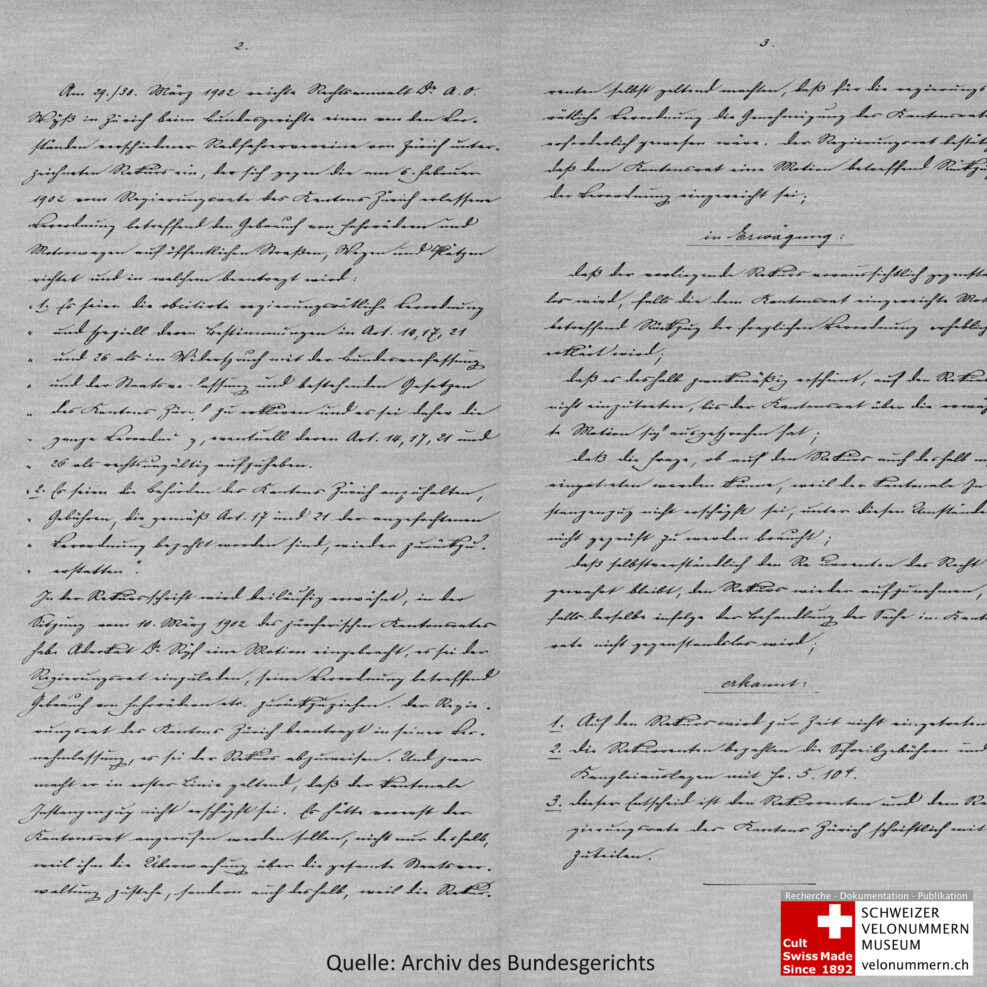 2.
Am 29./30. März 1902 reichte Rechtsanwalt Dr. A. O.
Wyß in Zürich beim Bundesgerichte einen von den Vor-
ständen verschiedener Radfahrervereine von Zürich unter-
zeichneten Rekurs ein, der sich gegen die am 6. Februar
1902 vom Regierungsrate des Kantons Zürich erlassene
Verordnung betreffend den Gebrauch von Fahrrädern und
Motorwagen auf öffentlichen Straßen, Wegen und Plätzen
richtet und in welchem beantragt wird:
„1. Es seien die obcitierte regierungsrätliche Verordnung
„ und speziell deren Bestimmungen in Art. 14, 17, 21
„ und 26 als in Widerspruch mit der Bundesverfassung
„ und der Staatsve fassung und bestehenden Gesetzen
„ des Kantons Zür zu erklären und es sei daher die
„ ganze Verordnu g, eventuell deren Art. 14, 17, 21 und
„ 26 als rechtsungültig aufzuheben.
„2. Es seien die Behörden des Kantons Zürich anzuhalten,
„ Gebühren, die gemäß Art. 17 und 21 der angefochtenen
„ Verordnung bezahlt worden sind, wieder zurückzu-
„ erstatten“.
In der Rekursschrift wird beiläufig erwähnt, in der
Sitzung vom 10. März 1902 des zürcherischen Kantonsrates
habe Advokat Dr. Ryf eine Motion eingebracht, es sei der
Regierungsrat einzuladen, seine Verordnung betreffend
Gebrauch von Fahrrädern etc. zurückzuziehen. Der Regie-
rungsrat des Kantons Zürich beantragt in seiner Ver-
nehmlassung, es sei der Rekurs abzuweisen. Und zwar
macht er in erster Linie geltend, daß der kantonale
Instanzenzug nicht erschöpft sei. Es hätte vorerst der
Kantonsrat angerufen werden sollen, nicht nur deshalb,
weil ihm die Überwachung über die gesamte Staatsver-
waltung zustehe, sondern auch deshalb, weil die Rekur-
3.
renten selbst geltend machten, daß für die regierungs
rätliche Verordnung die Genehmigung des Kantonsrat
erforderlich gewesen wäre. Der Regierungsrat bestät
daß dem Kantonsrat eine Motion betreffend Rückzu
der Verordnung eingereicht sei;
in Erwägung:
daß der vorliegende Rekurs voraussichtlich gegensta
los wird, falls die dem Kantonsrat eingereichte Mot
betreffend Rückzug der fraglichen Verordnung erheblic
erklärt wird;
daß es deshalb zweckmäßig erscheint, auf den Rekur
nicht einzutreten, bis der Kantonsrat über die erwäh
te Motion sich ausgesprochen hat;
daß die Frage, ob auf den Rekurs auch deshalb n
eingetreten werden könne, weil der kantonale In
stanzenzug nicht erschöpft sei, unter diesen Umstände
nicht geprüft zu werden braucht;
daß selbstverständlich den Re urrenten das Recht
gewahrt bleibt, den Rekurs wieder aufzunehmen,
falls derselbe infolge der Behandlung der Sache im Kant
rate nicht gegenstandslos wird;
erkannt:
1. Auf den Rekurs wird zur Zeit nicht eingetreten
2. Die Rekurrenten bezahlen die Schreibgebühren und
Kanzleiauslagen mit Fr. 5. 10 
3. Dieser Entscheid ist den Rekurrenten und dem Re
gierungsrate des Kantons Zürich schriftlich mit
zuteilen.
Recherche - Dokumentation - Publikation
Cult
Swiss Made
Since 1892
SCHWEIZER
VELONUMMERN
MUSEUM
velonummern.ch
Quelle: Archiv des Bundesgerichts